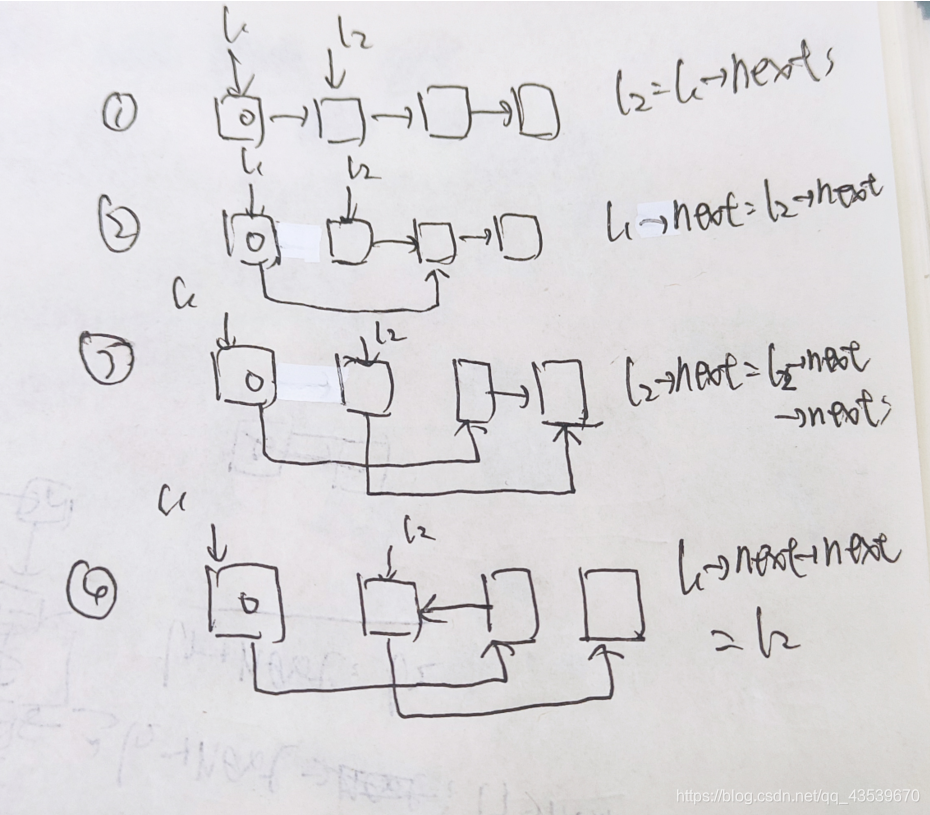 l₁
l₂
① 0 l₂=l₁→next;
l₁ l₂
② 0 l₁→next=l₂→next
l₁
l₂
③ 0 l₂→next=l₂→next
→next;
l₁
l₂
④ 0 l₁→next→next
=l₂
https://blog.csdn.net/qq_43539670